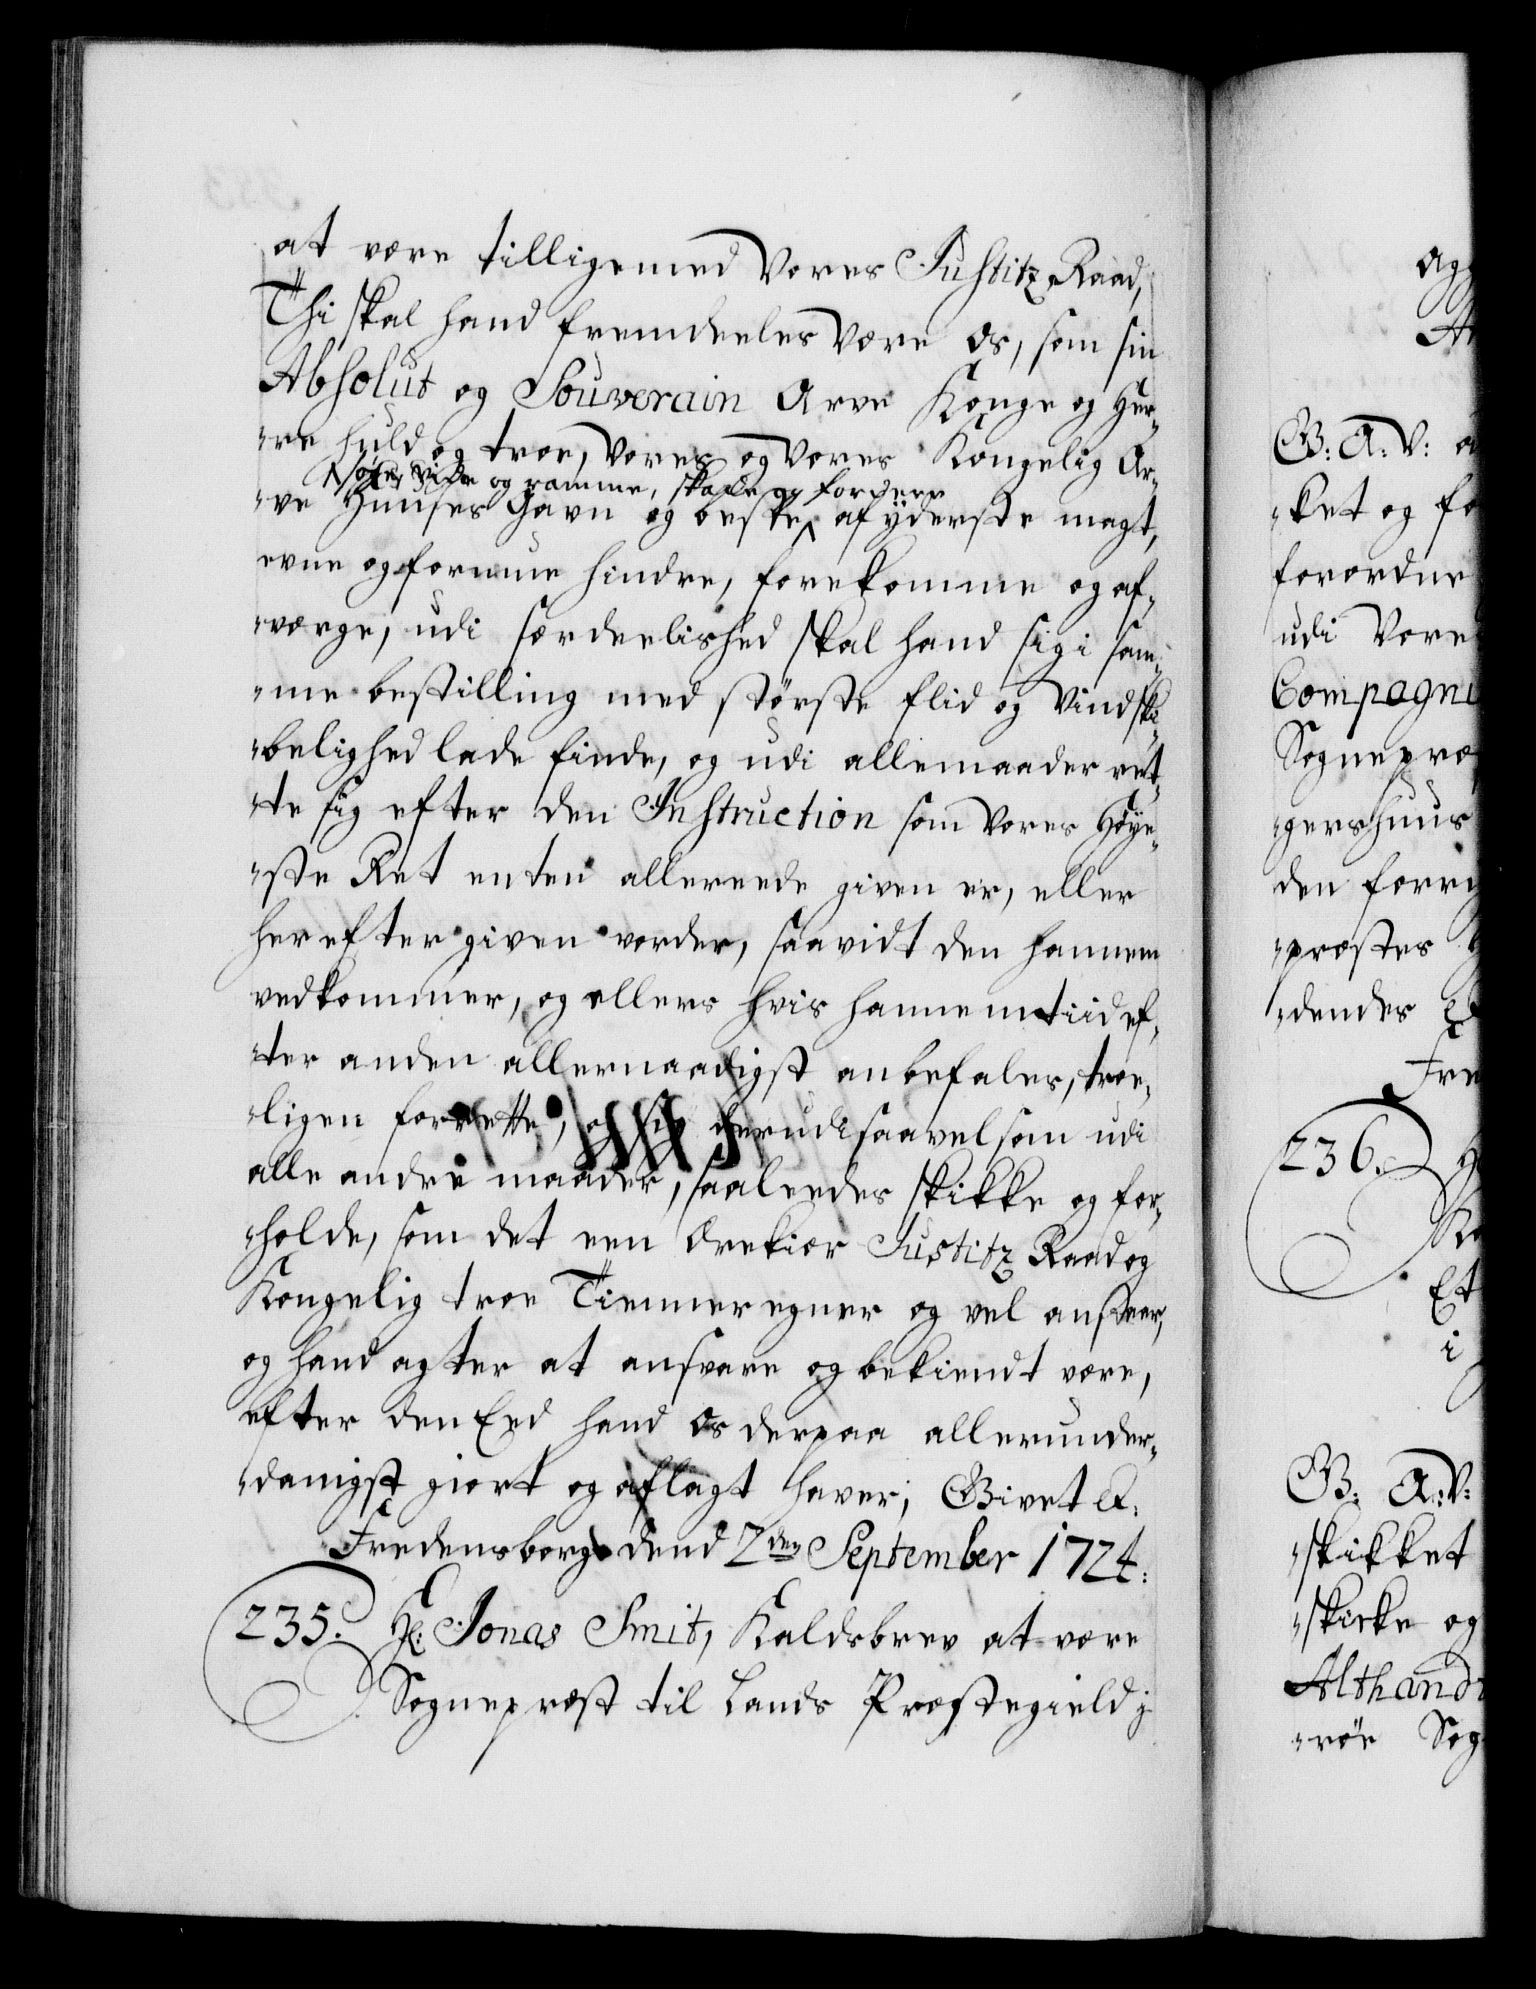 at være tilligemed Vores Justitz Raad,
Thi skal hand fremdeeles Være os, som sin
Absolut og Souverain Arve Konge og Her-
-re huld og troe, Vores og Vores Kongelig Ar-
søge, vide og ramme, skade og fordærv
-ve Huuses Gavn og beste af yderste magt,
evne og formue hindre, forekomme og af-
-værge, udi særdeelished skal hand sig i sam-
-me bestilling med største flid og Vindski-
-belighed lade finde, og udi allemaader ret-
-te sig efter den Instruction som Vores Høye-
-ste Ret enten allereede given er, eller
herefter given vorder, saavidt den hannem
vedkommer, og ellers hvis hannem tiid ef-
-ter anden allernaadigst anbefales, troe-
-ligen forrette, og sig derudi saavelsom udi
alle andre maader, saaleedes skikke og for-
-holde, som det een ærekier Justitz Raad og
Kongelig troe Tienner egner og vel anstaar,
og hand agter at ansvare og bekiendt være,
efter den Eed hand os derpaa allerunder-
-danigst giort og aflagt haver, Givet etc:
Fredensborg dend 2den September 1724:
235. Hr: Jonas Smit, Kaldsbrev at være
Sognepræst til Lands Præstegield j
Agg
B: A: V:
-ket og fo
forordne
udi Vore
Compagni
Sognepræ
-gershuus
den forri
-præstes
-dendes
Fre
236.
Ko
Et
i
B: A: V:
-skikket
-skicke og
Althand
-rør Sog